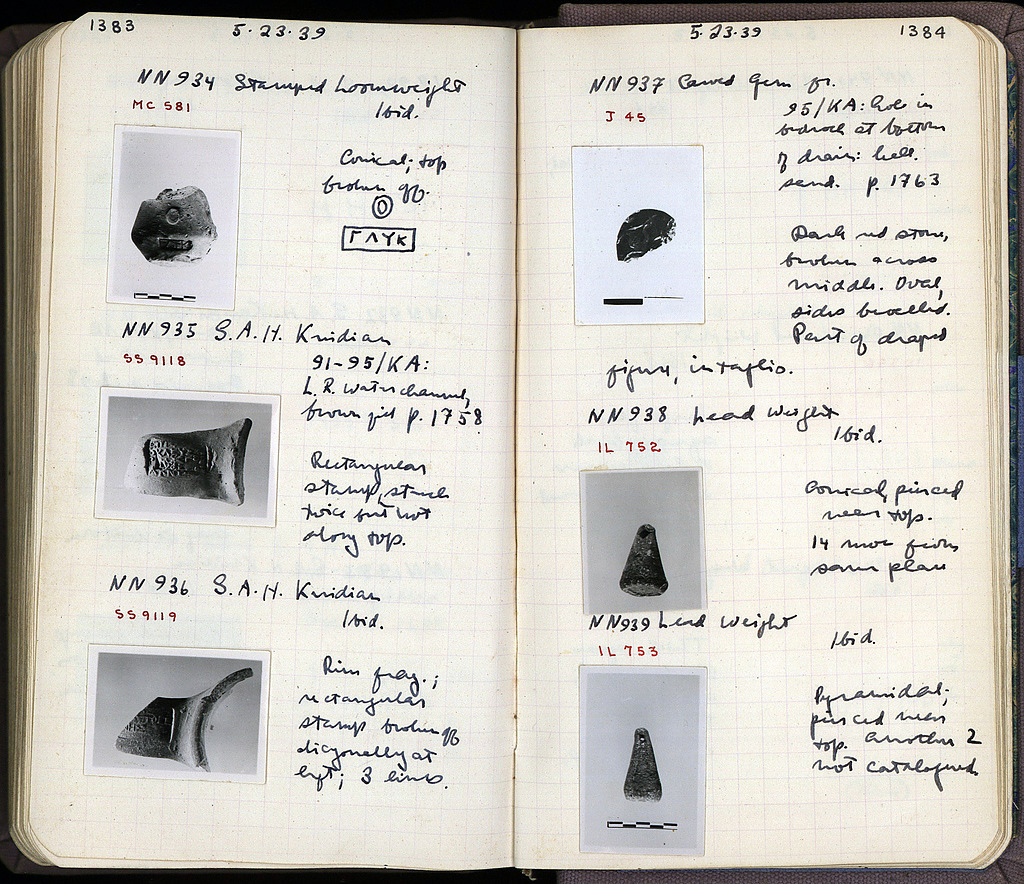 1383
5·23·39
NN934 Stamped Loomweight
MC 581
Ibid.
Conical; top
broken off.
ΓΛΥΚ
NN935 S.A.H. Knidian
SS 9118
91-95/KA:
L.R. water channel,
brown fill p. 1758
Rectangular
stamp, struck
twice but not
along top.
NN936 S.A.H. Knidian
SS 9119
Ibid.
Rim frag.;
rectangular
stamp broken off
diagonally at
left; 3 lines.
5·23·39
1384
NN937 Carved Gem fr.
J 45
95/KA: hole in
bedrock at bottom
of drain: hell.
sand. p. 1763
Dark red stone,
broken across
middle. Oval,
sides bevelled.
Part of draped
figure, intaglio.
NN938 Lead Weight
IL 752
Ibid.
Conical, pierced
near top.
14 more from
same place
NN939 Lead Weight
IL 753
Ibid.
Pyramidal;
pierced near
top. Another 2
not catalogued